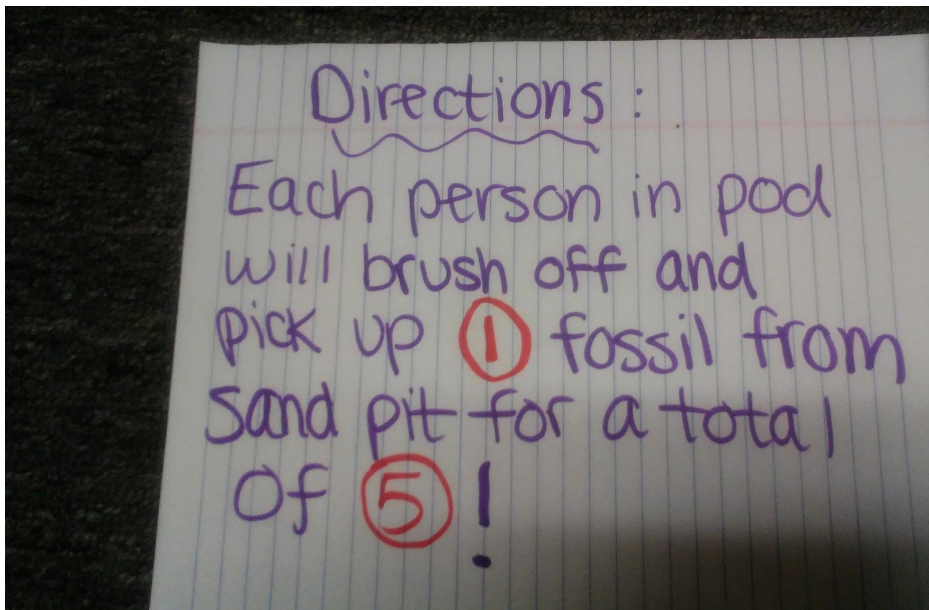 Directions:
Each person in pod
will brush off and
pick up 1 fossil from
sand pit for a total
of 5!